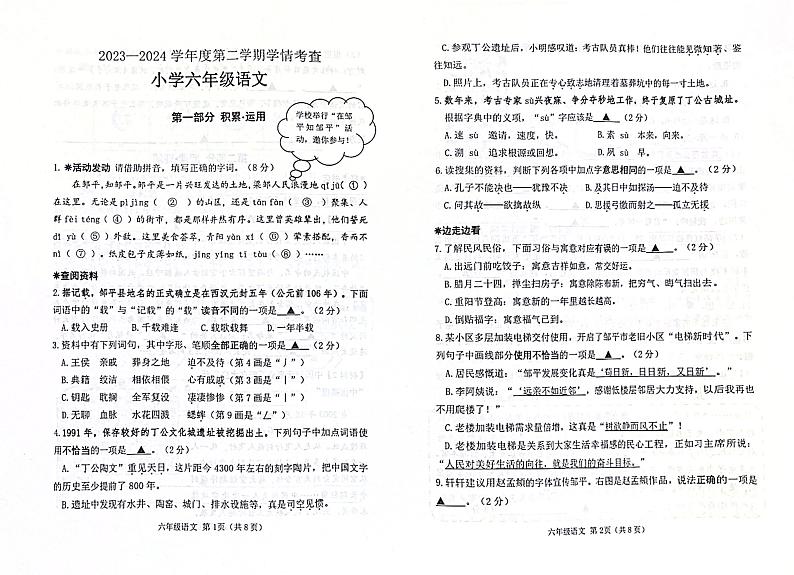 2023—2024 学年度第二学期学情考查
小学六年级语文
第一部分 积累·运用
学校举行“在邹
平知邹平”活
动，邀你参与！
1. ✱活动发动 请借助拼音，填写正确的词词。（8 分）
在邹平，知邹平。邹平是一片兴旺发达的土地，梁邹人民浪漫地 qī jū（ ① ）
在这里。无论是 pì jìng（ ② ）的山区，还是 tān fàn（ ③ ）聚集、人
群 fèi téng（ ④ ）的街市，都是那样井然有序。这里曾英雄辈出，他们誓死
dǐ yù（ ⑤ ）外敌。这里美食荟萃，青阳 yàn xí（ ⑥ ）荤素搭配，香而不
nì（ ⑦ ）。纸皮包子皮薄如纸，jīng yíng tī tòu（ ⑧ ）……
✱查阅资料
2. 据记载，邹平县地名的正式确立是在西汉元封五年（公元前 106 年）。下面
词语中的“载”与“记载”的“载”读音不同的一项是 ▲ 。（2 分）
A. 载入史册 B. 千载难逢 C. 载歌载舞 D. 一年半载
3. 资料中有下列词句，其中字形、笔顺全部正确的一项是 ▲ 。（2 分）
A. 王侯 亲戚 葬身之地 迫不及待（第 4 画是“丿”）
B. 典籍 绞洁 相依相偎 心有戚戚（第 9 画是“丨”）
C. 钥匙 耽搁 全军复没 凄凄惨惨（第 7 画是“丨”）
D. 无聊 血脉 水花四溅 蟋蟀（第 9 画是“∠”）
4. 1991 年，保存较好的丁公文化城遗址被挖掘出土。下列句子中加点词语使
用不恰当的一项是 ▲ 。（2 分）
A. “丁公陶文”重见天日，这片距今 4300 年左右的刻字陶片，把中国文字
的历史至少提前了 800 年。
B. 遗址中发现有水井、陶窑、城门、排水设施等，真是司空见惯。
六年级语文 第 1页（共 8 页）
C. 参观丁公遗址后，小明感叹道：考古队员真棒！他们往往能见微知著、鉴
往知远。
D. 照片上，考古队员正在专心致志地清理着墓葬坑中的每一寸土地。
5. 数年来，考古专家 sù兴夜寐、争分夺秒地工作，终于复原了丁公古城址。
根据字典中的义项，“sù”字应该是 ▲ （2 分）
A. 速 sù 邀请，速度，快。 B. 素 sù 本来，向来。
C. 溯 sù 追求根源或回想。 D. 夙 sù 早。
6. 读搜集的资料，判断下列各项中加点字意思相同的一项是 ▲ 。（2 分）
A. 孔子不能决也——犹豫不决 B. 及其日中如探汤——迫不及待
C. 问其故——欲擒故纵 D. 思援弓缴而射之——孤立无援
✱边走边看
7. 了解民风民俗，下面习俗与寓意对应有误的一项是 ▲ 。（2 分）
A. 出远门前吃饺子：寓意吉祥如意，常交好运。
B. 腊月二十四，掸尘扫房子：寓意除陈布新，把穷气、晦气扫出去。
C. 重阳节登高：寓意新的一年里越长越高。
D. 倒贴福字：寓意福气已到。
8. 某小区多层加装电梯交付使用，开启了邹平市老旧小区“电梯新时代”。下
列句子中画线部分使用不恰当的一项是 ▲ 。（2 分）
A. 居民感慨道：“邹平发展变化真是‘苟日新，日日新，又日新’。”
B. 李阿姨说：“‘远亲不如近邻’，感谢低楼层邻居大力支持，以后我再也
不用爬楼了！”
C. 老楼加装电梯需求量倍增，这真是“树欲静而风不止”！
D. 老楼加装电梯是关系到大家生活幸福感的民心工程，正如习主席所说：
“人民对美好生活的向往，就是我们的奋斗目标。”
9. 轩轩建议用赵孟頫的字体宣传邹平。右图是赵孟頫作品，说法正确的一项是
▲ 。（2 分）
六年级语文 第 2页（共 8 页）